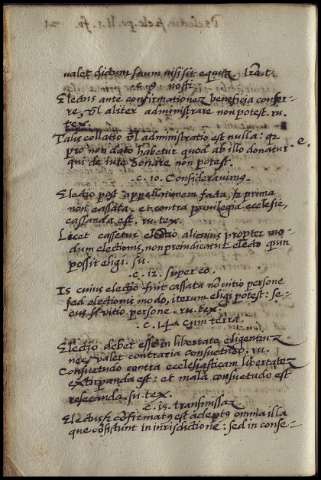 valet dictum suum nisi sit equus
c. 9. nosti.
Electus ante confirmationem beneficia confer-
re, vel aliter administrare non potest. ru.
tex.
Talis collatio vel administratio est nulla: quia
pro non dato habetur quod ab illo donatur
qui de iure donare non potest.
c. 10. Consideravimus.
Electio post appellationem facta, si prima
non cassata et contra privilegia ecclesie,
cassanda est. ru. tex.
Licet cassetur electio alicuius propter mo-
dum electionis, non preiudicatur Electo quin
possit eligi. su.
c. 12. super eo.
Is cuius electio fuit cassata non vitio persone
sed electionis modo, iterum eligi potest: se-
cus si vitio persone. ru. tex.
c. 14. cum terra.
Electio debet esse in libertate eligentium
nec valet contraria consuetudo. ru.
Consuetudo contra ecclesiasticam libertatem
extirpanda est: et mala consuetudo est
resecanda. su. tex.
c. 15. transmissam
Electus confirmatus est adeptus omnia illa
que consistunt in iurisdictione: sed in conse-